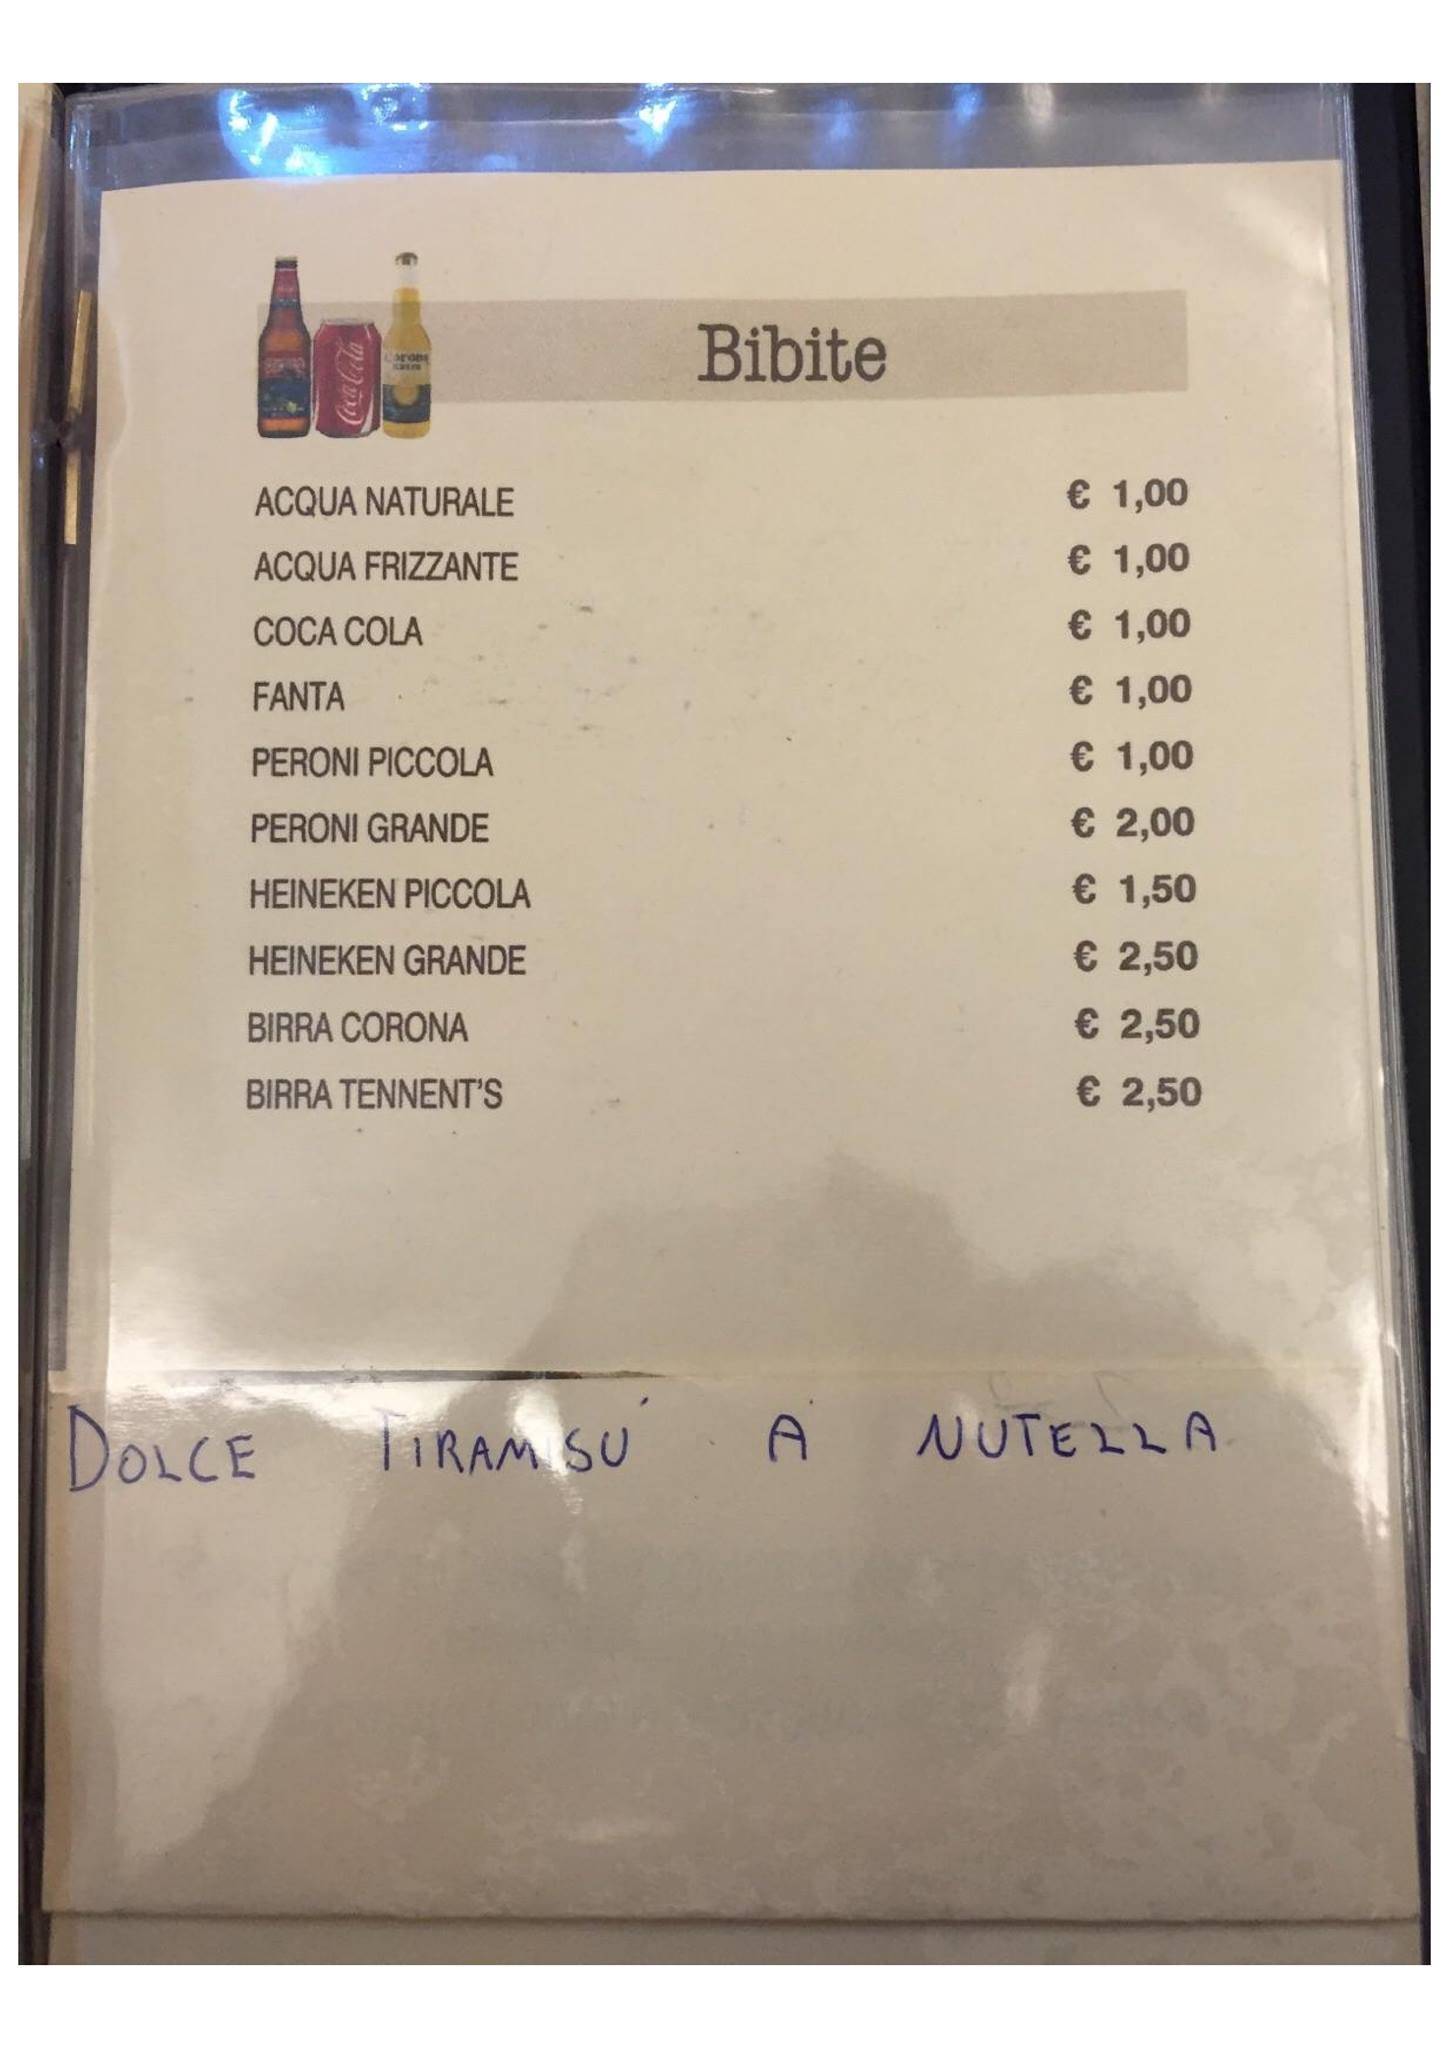 Bibite
Coca-Cola
Corona
ACQUA NATURALE € 1,00
ACQUA FRIZZANTE € 1,00
COCA COLA € 1,00
FANTA € 1,00
PERONI PICCOLA € 1,00
PERONI GRANDE € 2,00
HEINEKEN PICCOLA € 1,50
HEINEKEN GRANDE € 2,50
BIRRA CORONA € 2,50
BIRRA TENNENT'S € 2,50
DOLCE TIRAMISU' A NUTELLA